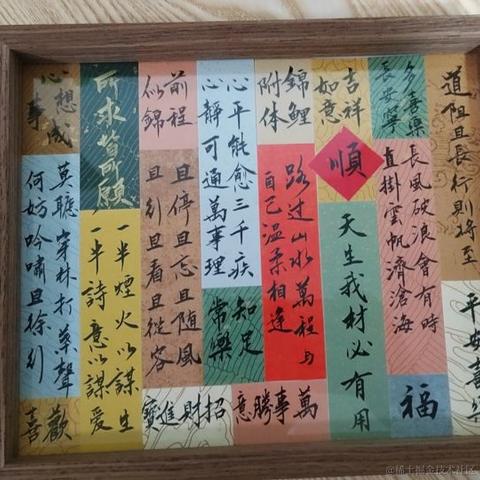 道阻且長行則將至
平安喜樂
多喜樂
長安寧
長風破浪會有時
直掛雲帆濟滄海
福
吉祥
如意
順
天生我材必有用
錦鯉
附体
路过山水萬程与
自己温柔相逢
萬事勝意
心平能愈三千疾
心静可通萬事理
知足
常樂
招財進寶
前程
似錦
且停且忘且随風
且行且看且從容
所求皆所願
一半煙火以謀生
一半詩意以謀愛
心想事成
莫聽穿林打葉聲
何妨吟嘯且徐行
歡喜
@稀土掘金技术社区